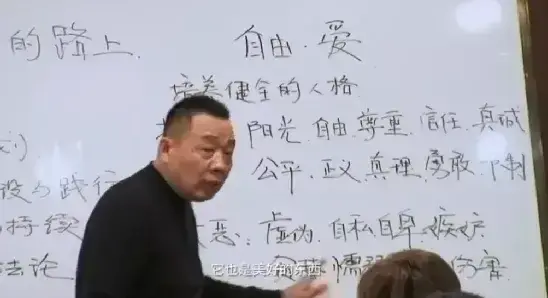 的路上 自由·爱
培养健全的人格
阳光 自由 尊重 信任 真诚
公平 正义 真理 勇敢 下制
设与践行
持续 恶:虚伪 自私自卑 嫉妒
法论 懦 伤害
它也是美好的东西